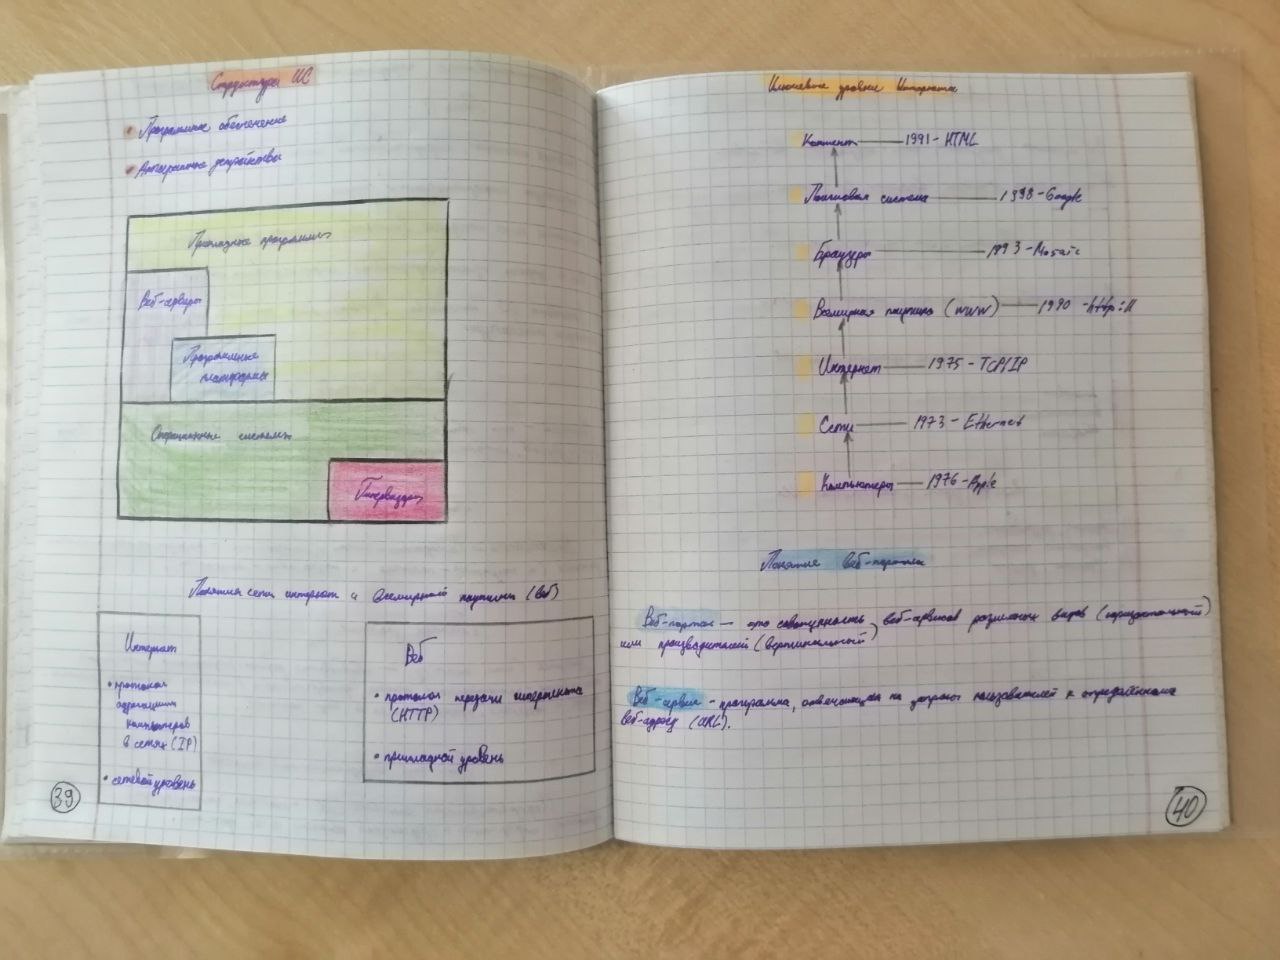 Структура ИС
• Программное обеспечение
• Аппаратные устройства
Прикладные программы
Веб-серверы
Программные
платформы
Операционные системы
Гипервизоры
Понятия сети интернет и Всемирной паутины (Веб)
Интернет
• протокол
адресации
компьютеров
в сетях (IP)
• сетевой уровень
Веб
• протокол передачи гипертекста
(HTTP)
• прикладной уровень
39
Ключевые уровни Интернета
Контент — 1991 - HTML
Поисковая система — 1998 - Google
Браузеры — 1993 - Mosaic
Всемирная паутина (WWW) — 1990 - http://
Интернет — 1975 - TCP/IP
Сети — 1973 - Ethernet
Компьютеры — 1976 - Apple
Понятие веб-портала
Веб-портал — это совокупность веб-сервисов различных видов (горизонтальный)
или производителей (вертикальный)
Веб-сервис - программа, отвечающая на запросы пользователей к определённому
веб-адресу (URL).
40